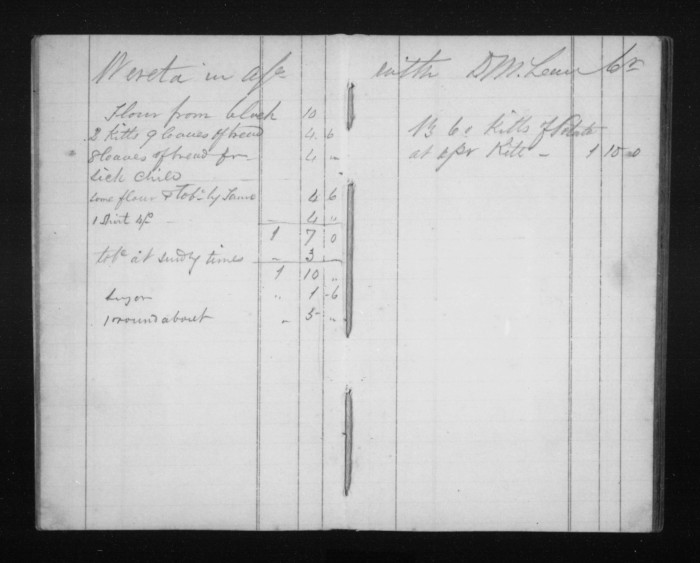 Wereta in a/c
Flour from block 10
2 Kitts 9 loaves of bread 4 6
8 loaves of bread for 4 "
sick child
some flour & tobc by Same 4 6
1 4/- 4 "
1 7 0
tobc at sundry times " 3
1 10 "
Sugar " 1 6
1 roundabout " 5 "
with D McLean Cr
Kitts of Potato
at Kitt - 1 10 0